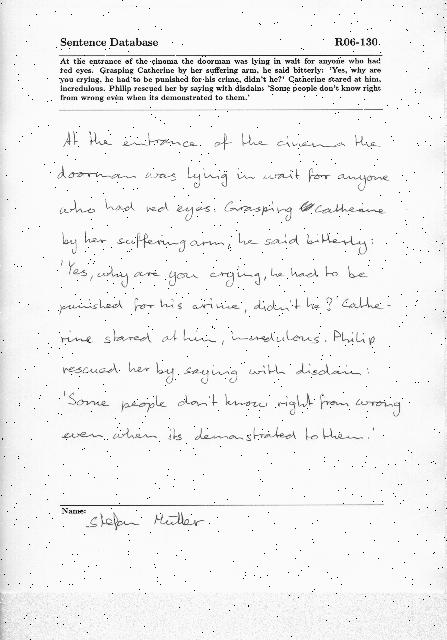 Sentence Database R06-130
At the entrance of the cinema the doorman was lying in wait for anyone who had
red eyes. Grasping Catherine by her suffering arm, he said bitterly: 'Yes, why are
you crying, he had to be punished for his crime, didn't he?' Catherine stared at him,
incredulous. Philip rescued her by saying with disdain: 'Some people don't know right
from wrong even when its demonstrated to them.'
At the entrance of the cinema the
doorman was lying in wait for anyone
who had red eyes. Grasping Catherine
by her suffering arm, he said bitterly:
'Yes, why are you crying, he had to be
punished for his crime, didn't he? Cathe-
rine stared at him, incredulous. Philip
rescued her by saying with disdain:
'Some people don't know right from wrong
even when its demonstrated to them.'
Name:
Stefan Müller